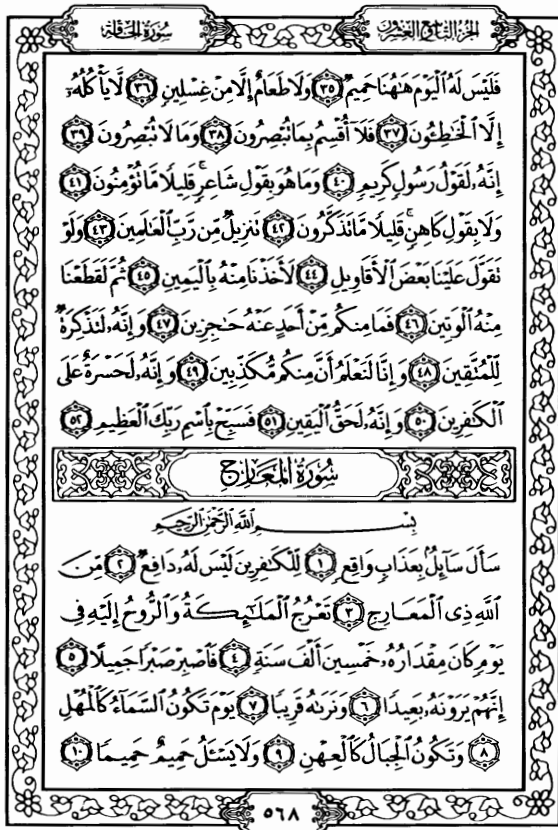 الجزء التاسع والعشرون
سورة الحاقة
فَلَيْسَ لَهُ ٱلْيَوْمَ هَٰهُنَا حَمِيمٌ ٣٥ وَلَا طَعَامٌ إِلَّا مِنْ غِسْلِينٍ ٣٦ لَّا يَأْكُلُهُۥٓ
إِلَّا ٱلْخَٰطِـُٔونَ ٣٧ فَلَآ أُقْسِمُ بِمَا تُبْصِرُونَ ٣٨ وَمَا لَا تُبْصِرُونَ ٣٩
إِنَّهُۥ لَقَوْلُ رَسُولٍ كَرِيمٍ ٤٠ وَمَا هُوَ بِقَوْلِ شَاعِرٍ ۚ قَلِيلًا مَّا تُؤْمِنُونَ ٤١
وَلَا بِقَوْلِ كَاهِنٍ ۚ قَلِيلًا مَّا تَذَكَّرُونَ ٤٢ تَنزِيلٌ مِّن رَّبِّ ٱلْعَٰلَمِينَ ٤٣ وَلَوْ
تَقَوَّلَ عَلَيْنَا بَعْضَ ٱلْأَقَاوِيلِ ٤٤ لَأَخَذْنَا مِنْهُ بِٱلْيَمِينِ ٤٥ ثُمَّ لَقَطَعْنَا
مِنْهُ ٱلْوَتِينَ ٤٦ فَمَا مِنكُم مِّنْ أَحَدٍ عَنْهُ حَٰجِزِينَ ٤٧ وَإِنَّهُۥ لَتَذْكِرَةٌ
لِّلْمُتَّقِينَ ٤٨ وَإِنَّا لَنَعْلَمُ أَنَّ مِنكُم مُّكَذِّبِينَ ٤٩ وَإِنَّهُۥ لَحَسْرَةٌ عَلَى
ٱلْكَٰفِرِينَ ٥٠ وَإِنَّهُۥ لَحَقُّ ٱلْيَقِينِ ٥١ فَسَبِّحْ بِٱسْمِ رَبِّكَ ٱلْعَظِيمِ ٥٢
سُورَةُ الْمَعَارِجِ
بِسْمِ ٱللَّهِ ٱلرَّحْمَٰنِ ٱلرَّحِيمِ
سَأَلَ سَآئِلٌۢ بِعَذَابٍ وَاقِعٍ ١ لِّلْكَٰفِرِينَ لَيْسَ لَهُۥ دَافِعٌ ٢ مِّنَ
ٱللَّهِ ذِى ٱلْمَعَارِجِ ٣ تَعْرُجُ ٱلْمَلَٰٓئِكَةُ وَٱلرُّوحُ إِلَيْهِ فِى
يَوْمٍ كَانَ مِقْدَارُهُۥ خَمْسِينَ أَلْفَ سَنَةٍ ٤ فَٱصْبِرْ صَبْرًا جَمِيلًا ٥
إِنَّهُمْ يَرَوْنَهُۥ بَعِيدًا ٦ وَنَرَىٰهُ قَرِيبًا ٧ يَوْمَ تَكُونُ ٱلسَّمَآءُ كَٱلْمُهْلِ
٨ وَتَكُونُ ٱلْجِبَالُ كَٱلْعِهْنِ ٩ وَلَا يَسْـَٔلُ حَمِيمٌ حَمِيمًا ١٠
٥٦٨